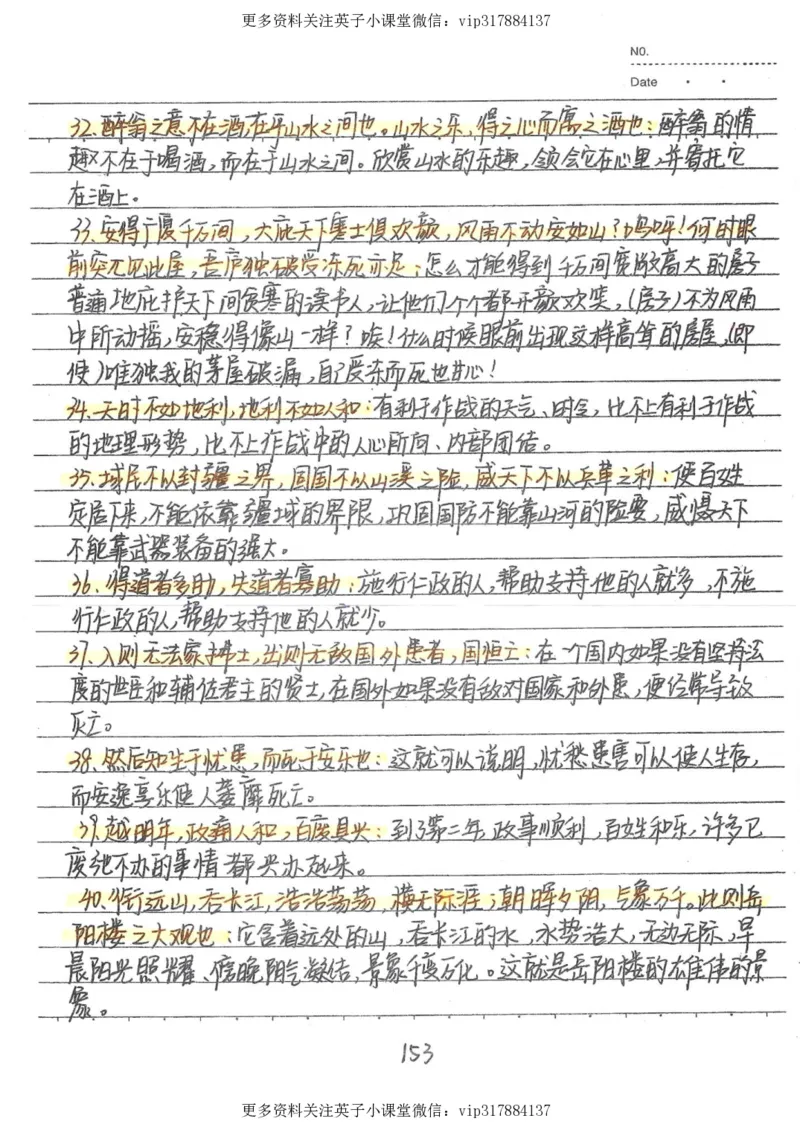 更多资料关注英子小课堂微信：vip317884137
NO.
Date
32、醉翁之意不在酒,在乎山水之间也。山水之乐，得之心而寓之酒也：醉翁的情
趣不在于喝酒，而在于山水之间。欣赏山水的乐趣，领会它在心里，并寄托它
在酒上。
33、安得广厦千万间，大庇天下寒士俱欢颜，风雨不动安如山？呜呼！何时眼
前突兀见此屋，吾庐独破受冻死亦足：怎么才能得到千万间宽敞高大的房子
普遍地庇护天下间贫寒的读书人，让他们个个都开颜欢笑，(房子)不为风雨
中所动摇，安稳得像山一样？唉！什么时候眼前出现这样高耸的房屋，(即
使)唯独我的茅屋破漏，自己受冻而死也甘心！
34、天时不如地利，地利不如人和：有利于作战的天气、时令，比不上有利于作战
的地理形势，比不上作战中的人心所向、内部团结。
35、域民不以封疆之界，固国不以山溪之险，威天下不以兵革之利：使百姓
定居下来，不能依靠疆域的界限，巩固国防不能靠山河的险要，威慑天下
不能靠武器装备的强大。
36、得道者多助，失道者寡助：施行仁政的人，帮助支持他的人就多，不施
行仁政的人，帮助支持他的人就少。
37、入则无法家拂士，出则无敌国外患者，国恒亡：在一个国内如果没有坚持法
度的世臣和辅佐君主的贤士，在国外如果没有敌对国家和外患，便经常导致
灭亡。
38、然后知生于忧患，而死于安乐也：这就可以说明，忧愁患害可以使人生存，
而安逸享乐使人萎靡死亡。
39、越明年，政通人和，百废具兴：到了第二年，政事顺利，百姓和乐，许多已
废弛不办的事情都兴办起来。
40、衔远山，吞长江，浩浩荡荡，横无际涯；朝晖夕阴，气象万千。此则岳
阳楼之大观也：它含着远处的山，吞长江的水，水势浩大，无边无际，早
晨阳光照耀、傍晚阴气凝结，景象千变万化。这就是岳阳楼的雄伟的景
象。
153
更多资料关注英子小课堂微信：vip317884137